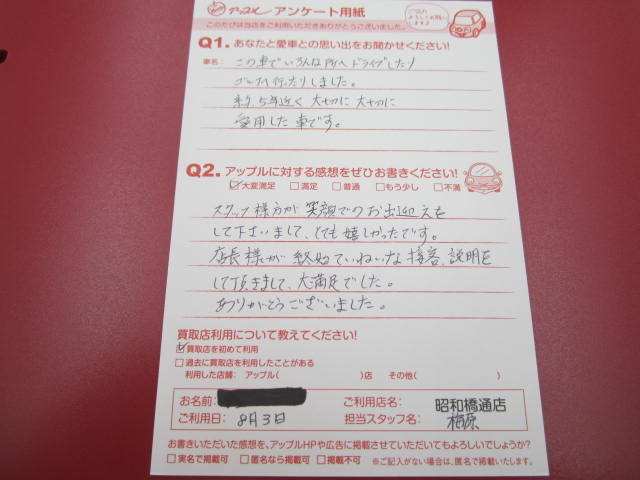 アップル アンケート用紙
このたびは当店をご利用いただきありがとうございました。
Q1. あなたと愛車との思い出をお聞かせください!
車名: この車でいろんな所へドライブしたり
ゴルフへ行ったりしました。
約、5年近く 大切に 大切に
愛用した車です。
Q2. アップルに対する感想をぜひお書きください!
☑大変満足 □満足 □普通 □もう少し □不満
スタッフ様方が笑顔でのお出迎えを
して下さいまして、とても嬉しかったです。
店長様が終始ていねいな接客、説明を
して頂きまして、大満足でした。
ありがとうございました。
買取店利用について教えてください!
☑買取店を初めて利用
□過去に買取店を利用したことがある
利用した店舗: アップル( )店 その他( )
お名前: ご利用店名: 昭和橋通店
ご利用日: 8月3日 担当スタッフ名: 梅原
お書きいただいた感想を、アップルHPや広告に掲載させていただいてもよろしいでしょうか?
□実名で掲載可 □匿名なら掲載可 □掲載不可 ※ご記入がない場合は、匿名で掲載いたします。